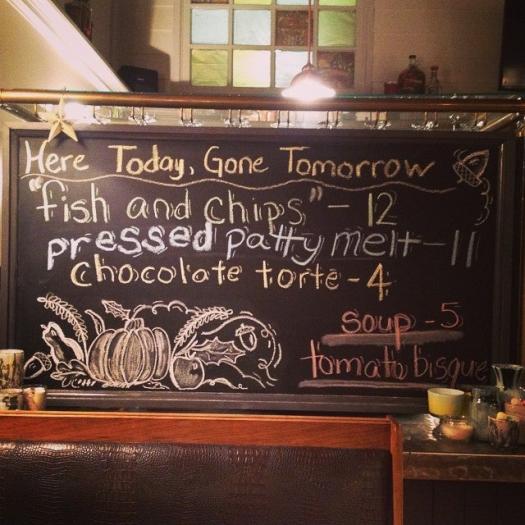 Here Today, Gone Tomorrow
"fish and chips" - 12
pressed patty melt - 11
chocolate torte - 4
soup - 5
tomato bisque